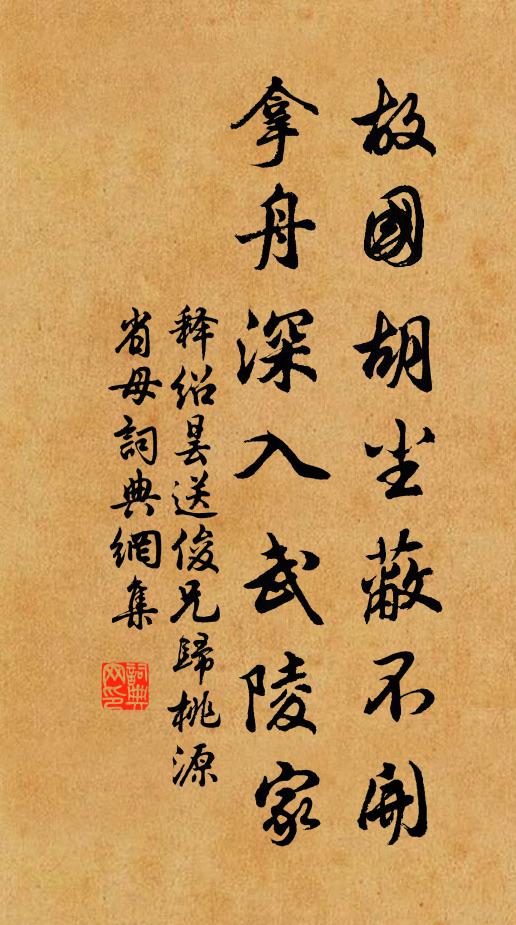 故國胡尘蔽不開
拿舟深入武陵家
释绍昙送俊兄歸桃源
省母詞典網集
詞典网印